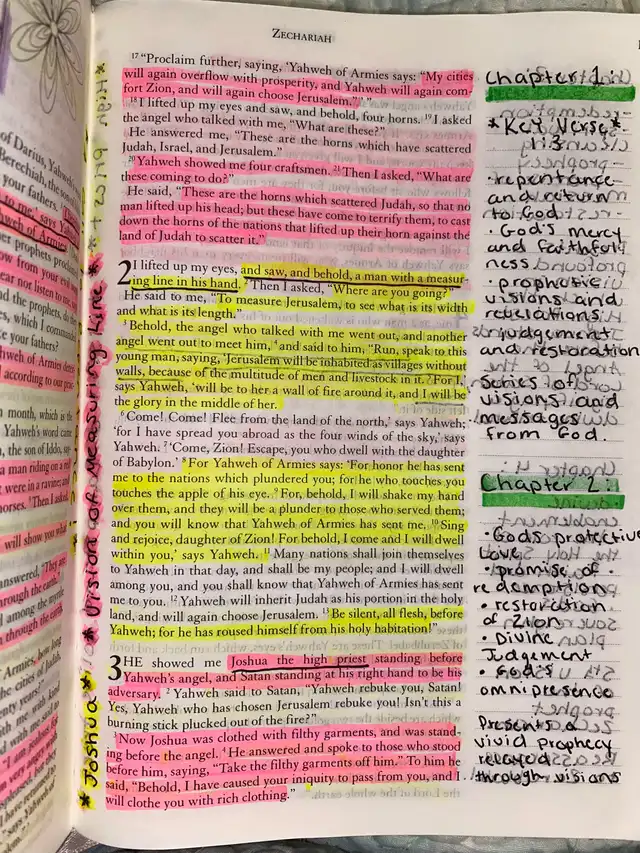 ZECHARIAH
17 "Proclaim further, saying, 'Yahweh of Armies says: "My cities
will again overflow with prosperity, and Yahweh will again com
fort Zion, and will again choose Jerusalem."'"
18 I lifted up my eyes and saw, and behold, four horns. 19 I asked
the angel who talked with me, "What are these?"
He answered me, "These are the horns which have scattered
Judah, Israel, and Jerusalem."
20 Yahweh showed me four craftsmen. 21 Then I asked, "What are
these coming to do?"
He said, "These are the horns which scattered Judah, so that no
man lifted up his head; but these have come to terrify them, to cast
down the horns of the nations that lifted up their horn against the
land of Judah to scatter it."
2 I lifted up my eyes, and saw, and behold, a man with a measur
ing line in his hand. 2 Then I asked, "Where are you going?"
He said to me, "To measure Jerusalem, to see what is its width
and what is its length."
3 Behold, the angel who talked with me went out, and another
angel went out to meet him, 4 and said to him, "Run, speak to this
young man, saying, 'Jerusalem will be inhabited as villages without
walls, because of the multitude of men and livestock in it. 5 For I,'
says Yahweh, 'will be to her a wall of fire around it, and I will be
the glory in the middle of her.
6 'Come! Come! Flee from the land of the north,' says Yahweh;
'for I have spread you abroad as the four winds of the sky,' says
Yahweh. 7 'Come, Zion! Escape, you who dwell with the daughter
of Babylon.' 8 For Yahweh of Armies says: 'For honor he has sent
me to the nations which plundered you; for he who touches you
touches the apple of his eye. 9 For, behold, I will shake my hand
over them, and they will be a plunder to those who served them;
and you will know that Yahweh of Armies has sent me. 10 Sing
and rejoice, daughter of Zion! For behold, I come and I will dwell
within you,' says Yahweh. 11 Many nations shall join themselves
to Yahweh in that day, and shall be my people; and I will dwell
among you, and you shall know that Yahweh of Armies has sent
me to you. 12 Yahweh will inherit Judah as his portion in the holy
land, and will again choose Jerusalem. 13 Be silent, all flesh, before
Yahweh; for he has roused himself from his holy habitation!"
3 HE showed me Joshua the high priest standing before
Yahweh's angel, and Satan standing at his right hand to be his
adversary. 2 Yahweh said to Satan, "Yahweh rebuke you, Satan!
Yes, Yahweh who has chosen Jerusalem rebuke you! Isn't this a
burning stick plucked out of the fire?"
3 Now Joshua was clothed with filthy garments, and was stand-
ing before the angel. 4 He answered and spoke to those who stood
before him, saying, "Take the filthy garments off him." To him he
said, "Behold, I have caused your iniquity to pass from you, and I
will clothe you with rich clothing."
Chapter 1:
* Key Verse *
1:3
· repentance
and return
to God
· God's mercy
and faithful
ness
· prophetic
visions and
revelations
· judgement
and restoration
· Series of
visions and
messages
from God.
Chapter 2:
· Gods protective
Love
· promise of
redemption
· restoration
of Zion
· Divine
Judgement
· God's
omnipresence
Presents a
vivid prophecy
relayed
through visions
* Vision of Measuring Line *
* Joshua *
of Darius, Yahweh
Berechiah, the son
your fathers.
to me,' says